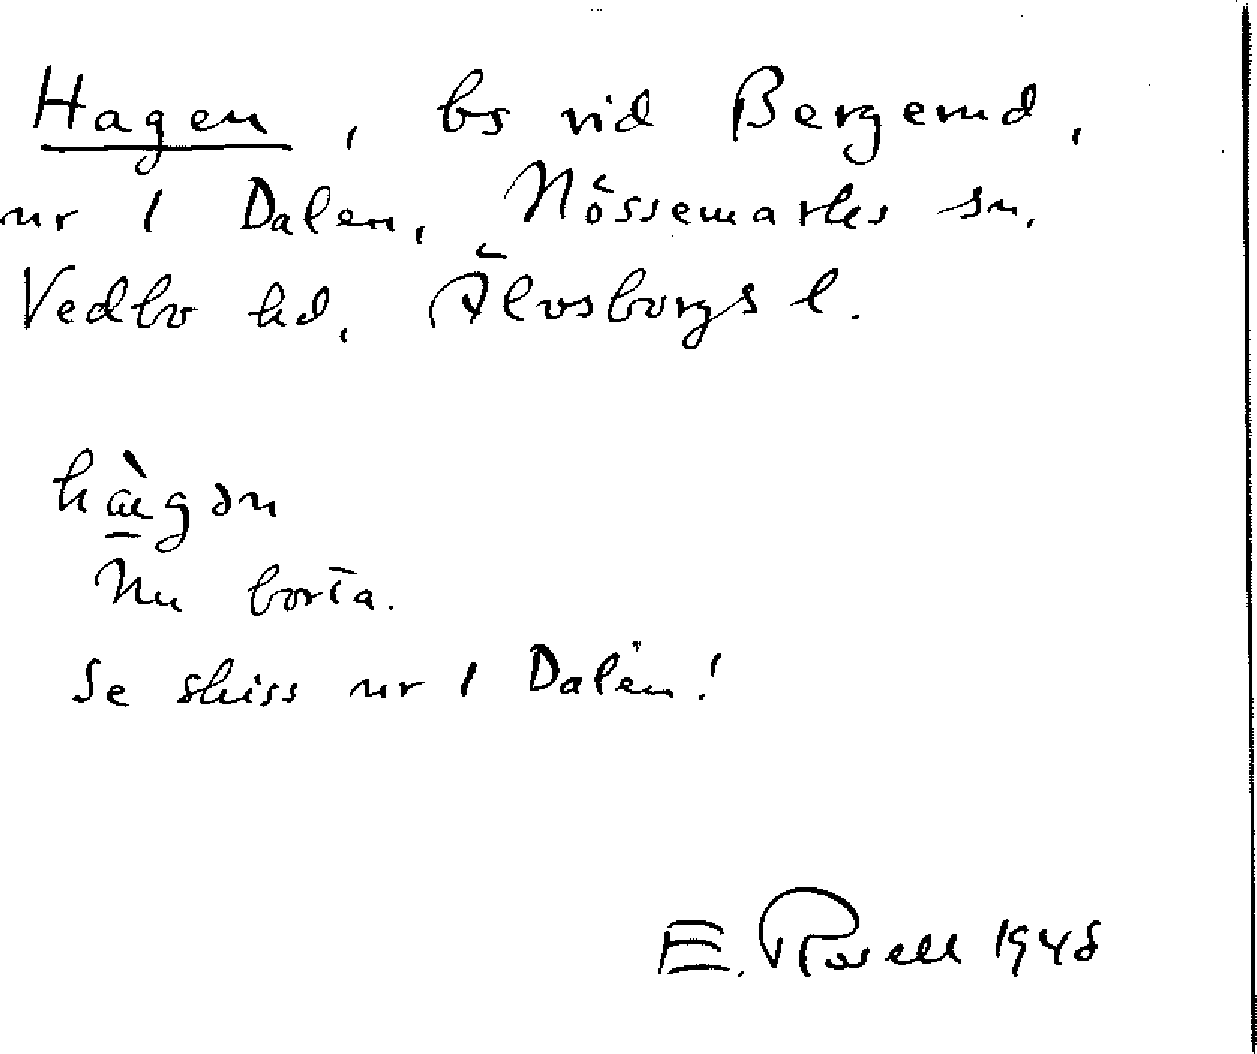 Hagen, bs vid Bergerud,
nr 1 Dalen, Nössemarks sn.
Vedbo hd, Älvsborgs l.
hàgən
Nu borta.
Se skiss nr 1 Dalen!
E. Rosell 1948